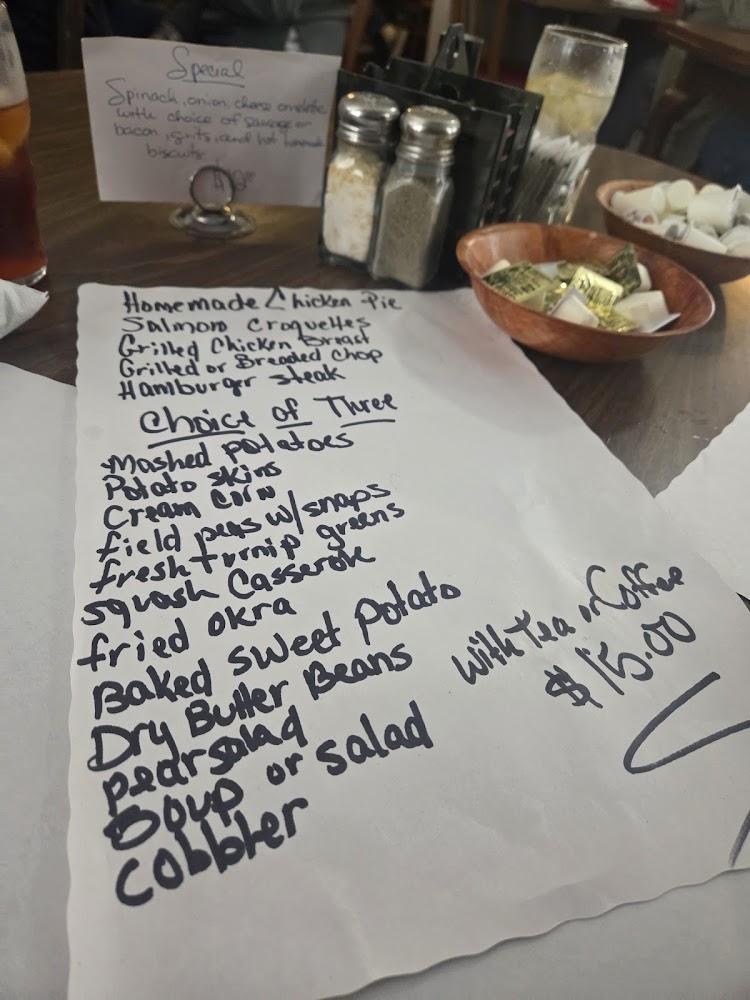 Special
Spinach, onion, cheese omelette
with choice of sausage or
bacon, grits, and hot homemade
biscuits
Homemade Chicken Pie
Salmon Croquettes
Grilled Chicken Breast
Grilled or Breaded Chop
Hamburger Steak
Choice of Three
Mashed potatoes
Potato skins
Cream Corn
field peas w/snaps
fresh turnip greens
squash Casserole
fried okra
Baked sweet Potato
Dry Butter Beans
pear salad
Soup or salad
Cobbler
with Tea or Coffee
$15.00